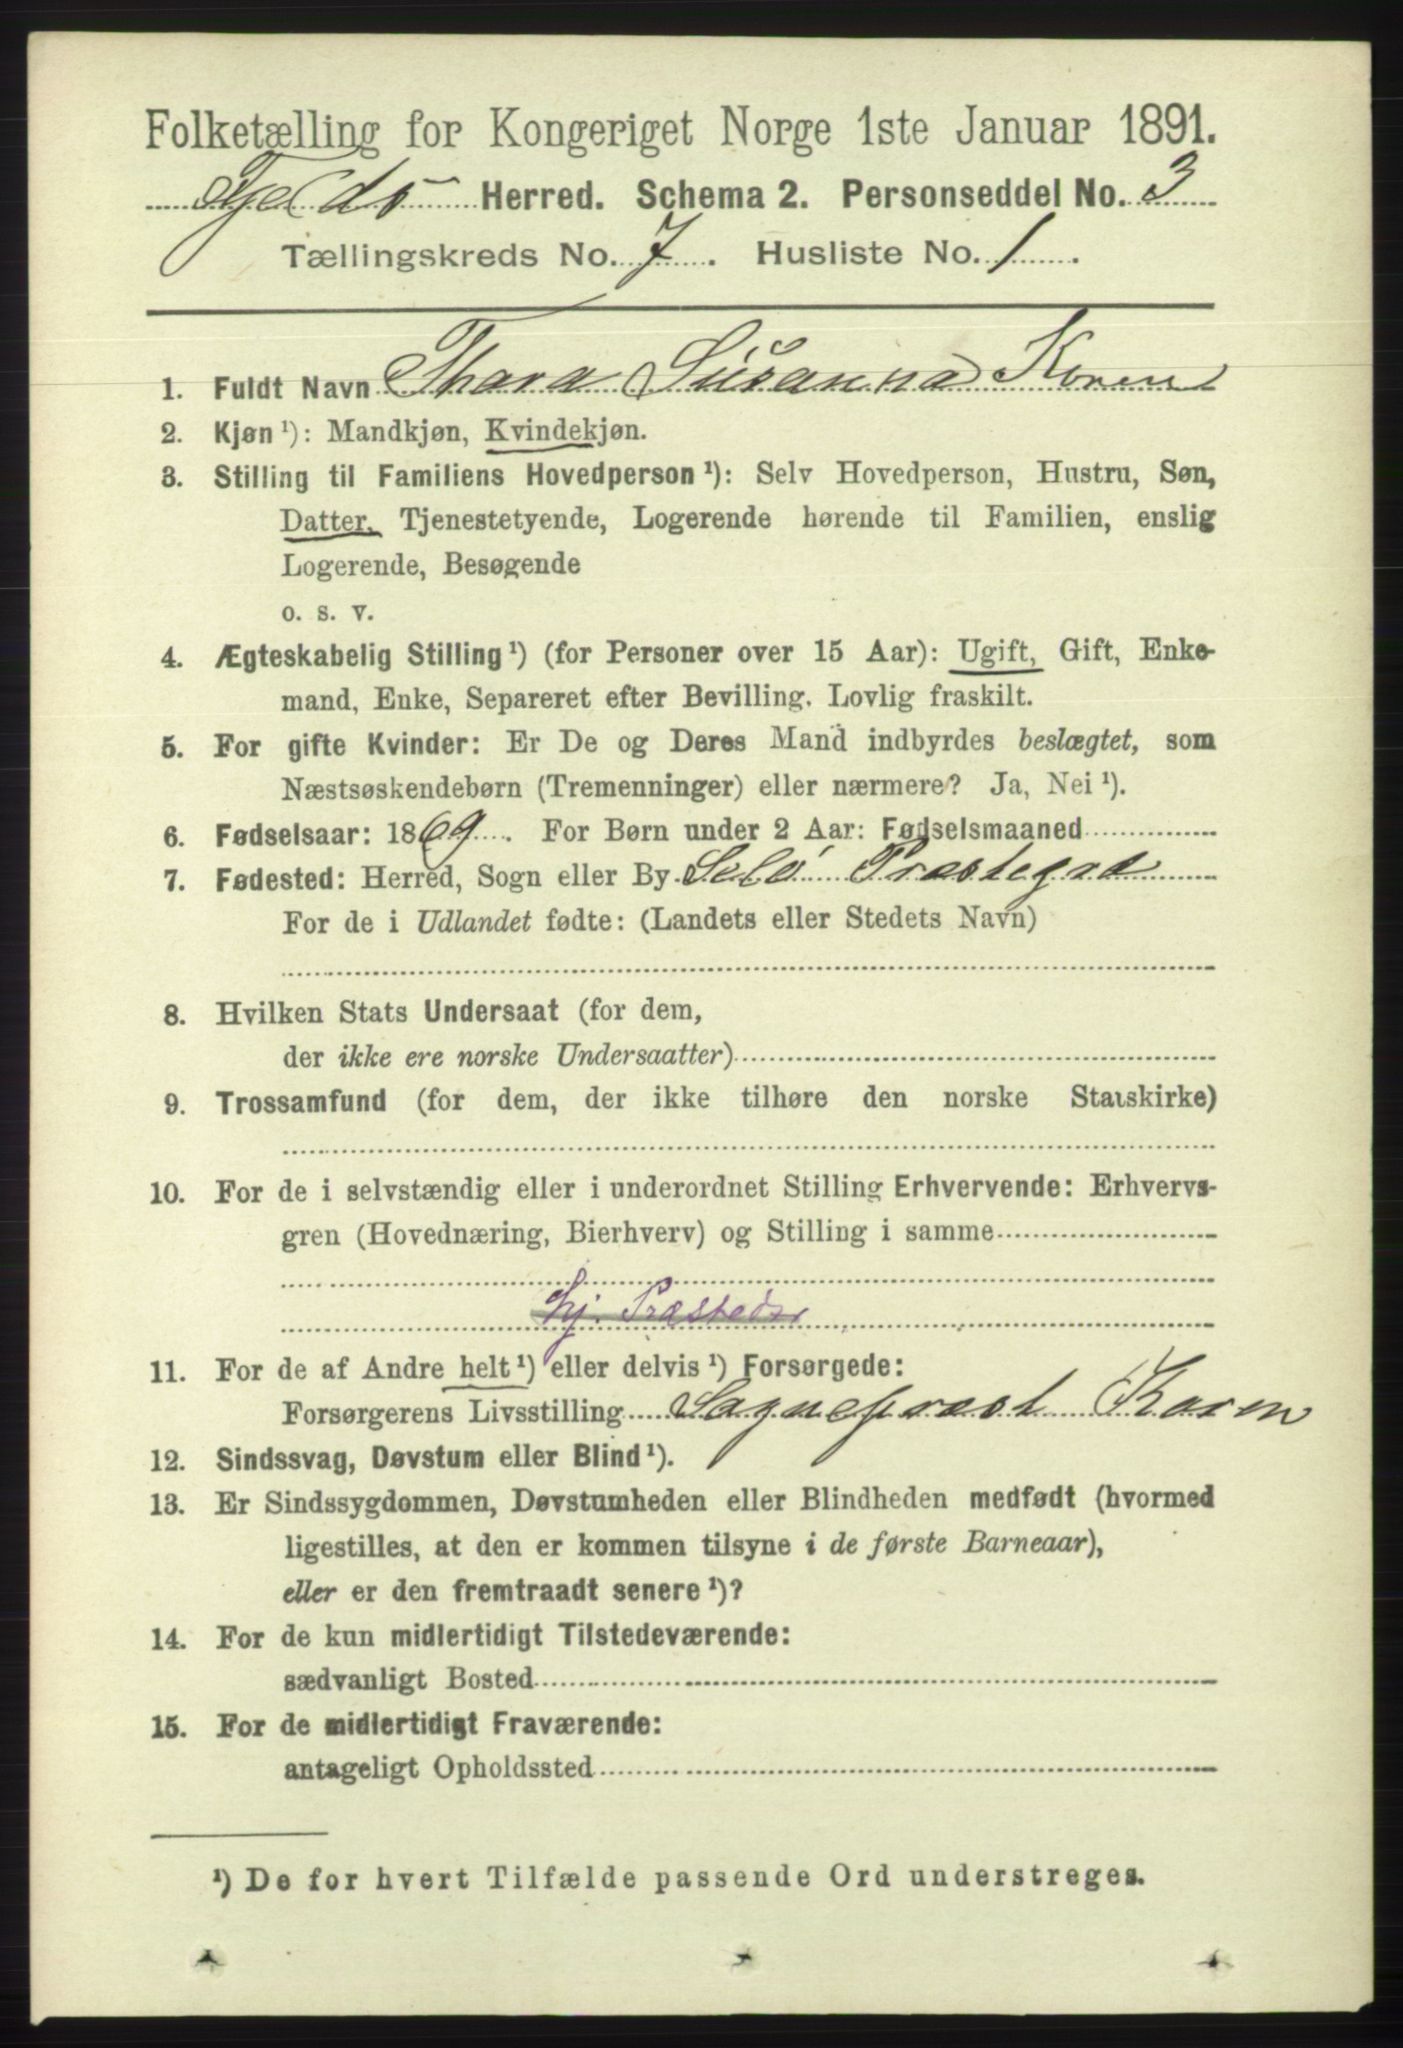 Folketælling for Kongeriget Norge 1ste Januar 1891.
Tjeldø Herred. Schema 2. Personseddel No. 3
Tællingskreds No. 7. Husliste No. 1.
1. Fuldt Navn Thora Susanna Koren
2. Kjøn ¹): Mandkjøn, Kvindekjøn.
3. Stilling til Familiens Hovedperson ¹): Selv Hovedperson, Hustru, Søn,
Datter, Tjenestetyende, Logerende hørende til Familien, enslig
Logerende, Besøgende
o. s. v.
4. Ægteskabelig Stilling ¹) (for Personer over 15 Aar): Ugift, Gift, Enke-
mand, Enke, Separeret efter Bevilling. Lovlig fraskilt.
5. For gifte Kvinder: Er De og Deres Mand indbyrdes beslægtet, som
Næstsøskendebørn (Tremenninger) eller nærmere? Ja, Nei ¹).
6. Fødselsaar: 1869. For Børn under 2 Aar: Fødselsmaaned
7. Fødested: Herred, Sogn eller By Selø Præstegrd
For de i Udlandet fødte: (Landets eller Stedets Navn)
8. Hvilken Stats Undersaat (for dem,
der ikke ere norske Undersaatter)
9. Trossamfund (for dem, der ikke tilhøre den norske Statskirke)
10. For de i selvstændig eller i underordnet Stilling Erhvervende: Erhvervs-
gren (Hovednæring, Bierhverv) og Stilling i samme
hj. Præsted
11. For de af Andre helt ¹) eller delvis ¹) Forsørgede:
Forsørgerens Livsstilling Sognepræst Koren
12. Sindssvag, Døvstum eller Blind ¹).
13. Er Sindssygdommen, Døvstumheden eller Blindheden medfødt (hvormed
ligestilles, at den er kommen tilsyne i de første Barneaar),
eller er den fremtraadt senere ¹)?
14. For de kun midlertidigt Tilstedeværende:
sædvanligt Bosted
15. For de midlertidigt Fraværende:
antageligt Opholdssted
¹) De for hvert Tilfælde passende Ord understreges.